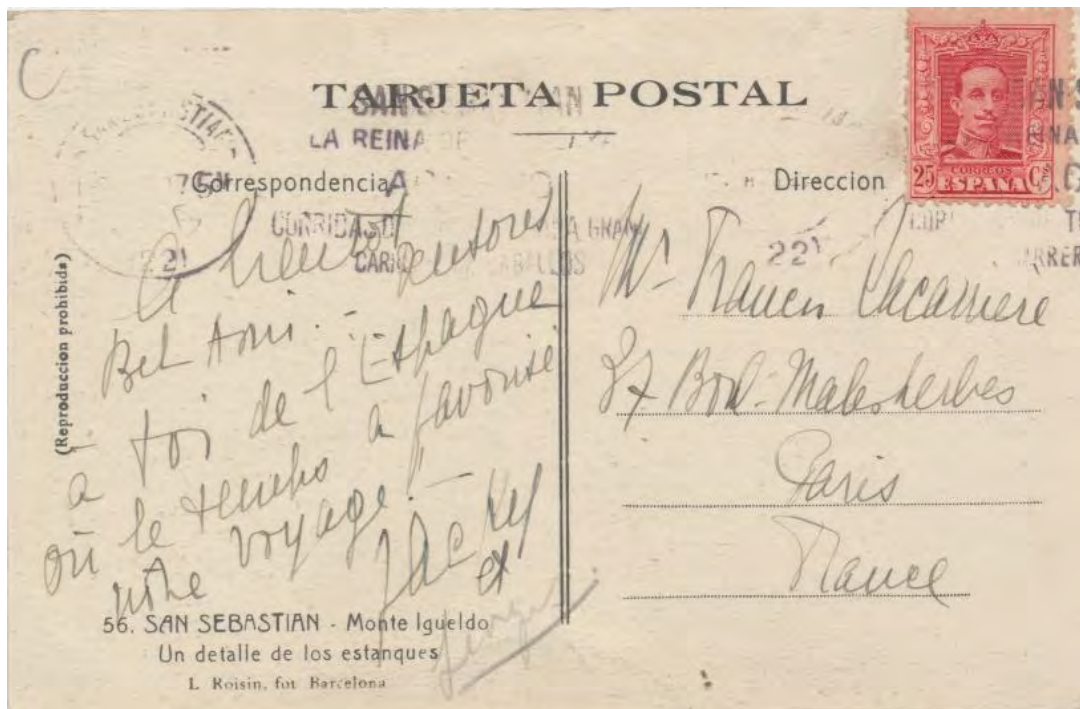 C
TARJETA POSTAL
SAN SEBASTIAN
LA REINA DE
Correspondencia
Direccion
CORRIDAS D GRAN
CARR CABALLOS
22
25 CORREOS ESPAÑA Cs
(Reproduccion prohibida)
A bientôt
Bel Ami. -
à toi de l'Espagne
où le temps a favorisé
notre voyage. -
Jacky
et
Mr Lacarriere
37 Bod. Malesherbes
Paris
France
56. SAN SEBASTIAN - Monte Igueldo
Un detalle de los estanques
L. Roisin, fot Barcelona